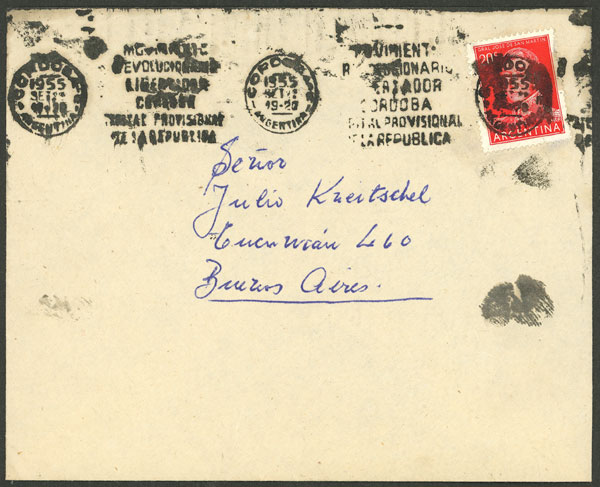 CORDOBA
1955
SET
19-20
ARGENTINA
MOVIMIENTO
REVOLUCIONARIO
LIBERTADOR
CORDOBA
CAPITAL PROVISIONAL
DE LA REPUBLICA
CORDOBA
1955
SET
19-20
ARGENTINA
MOVIMIENTO
REVOLUCIONARIO
LIBERTADOR
CORDOBA
CAPITAL PROVISIONAL
DE LA REPUBLICA
GRAL. JOSE DE SAN MARTIN
20c
1955
ARGENTINA
Señor
Julio Kneitschel
Tucumán 460
Buenos Aires.